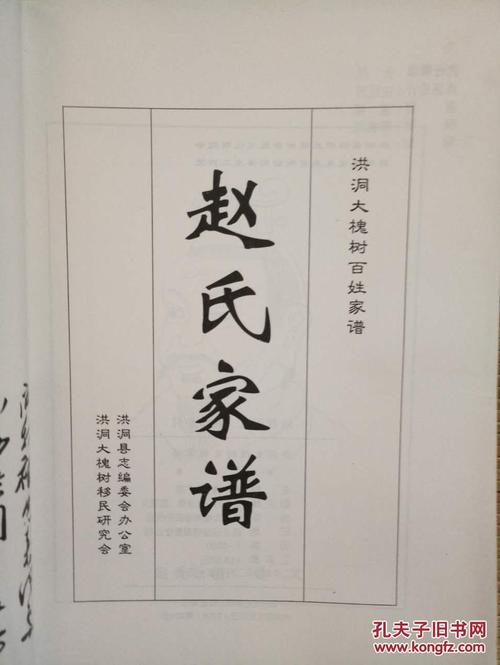 洪洞大槐树百姓家谱
赵氏家谱
洪洞县志编委会办公室
洪洞大槐树移民研究会
孔夫子旧书网
www.kongfz.com